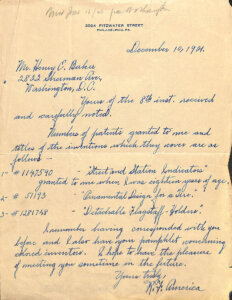 2024 FITZWATER STREET
PHILADELPHIA, PA.
December 10, 1921.
Mr. Henry E. Baker
Washington, D.C.
Yours of the 8th inst. received
and carefully noted.
Numbers of patents granted to me and
titles of the inventions which they cover are as
follows -
1- # 1147590 "Street and Station Indicator"
granted to me when I was eighteen years of age.
2- # 51193 "Ornamental Design for a Tire."
3- # 1281748 "Detachable Flagstaff-Holders"
I remember having corresponded with you
before and I also have your pamphlet concerning
colored inventors. I hope to have the pleasure
of meeting you sometime in the future.
Yours truly,
America